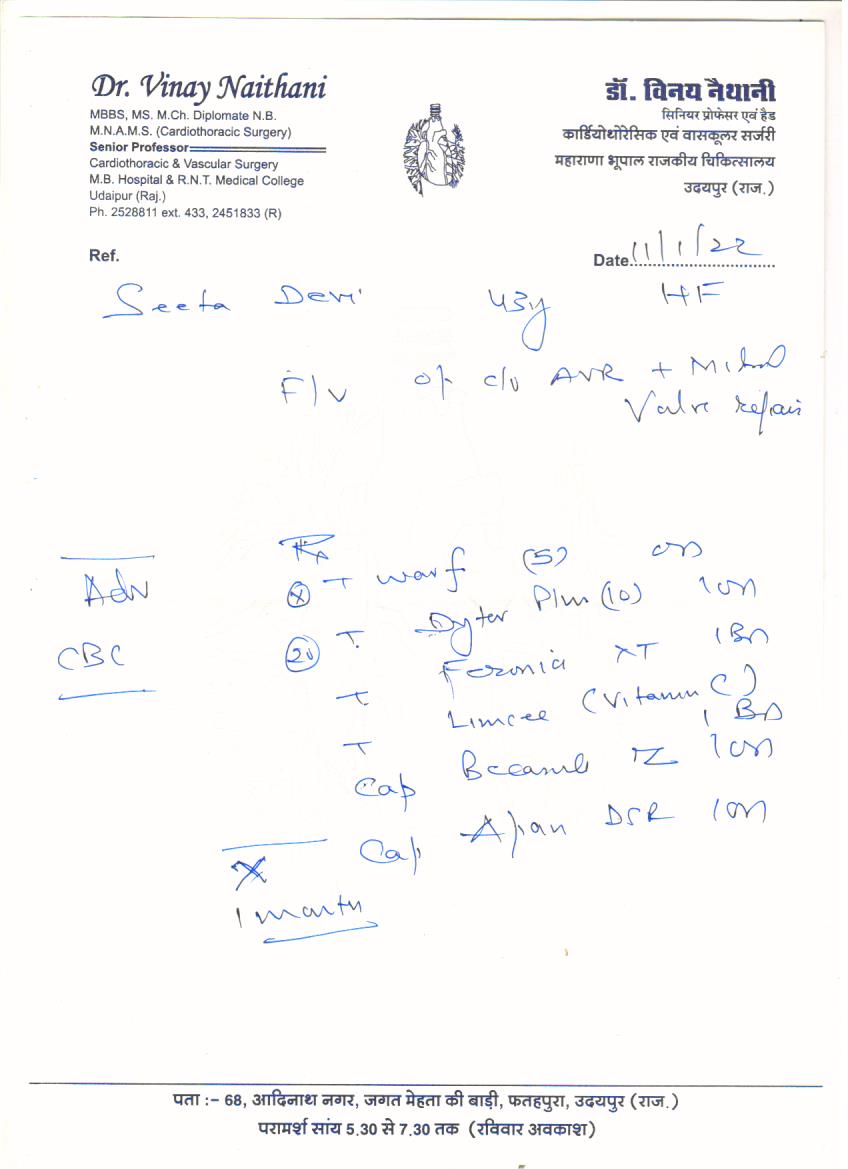 Dr. Vinay Naithani
MBBS, MS. M.Ch. Diplomate N.B.
M.N.A.M.S. (Cardiothoracic Surgery)
Senior Professor
Cardiothoracic & Vascular Surgery
M.B. Hospital & R.N.T. Medical College
Udaipur (Raj.)
Ph. 2528811 ext. 433, 2451833 (R)
डॉ. विनय नैथानी
सिनियर प्रोफेसर एवं हैड
कार्डियोथोरेसिक एवं वासकूलर सर्जरी
महाराणा भूपाल राजकीय चिकित्सालय
उदयपुर (राज.)
Ref.
Date 11/1/22
Seeta Devi 43y
F/U AVR + Mitral
Valve repair
Adv
CBC
T warf (5) OD
T. Dytor Plus (10) 1 OD
T. Feronia XT 1 BD
T Limcee (Vitamin C)
1 BD
Cap Z 1 OD
Cap DSR 1 OD
X
1 month
पता :- 68, आदिनाथ नगर, जगत मेहता की बाड़ी, फतहपुरा, उदयपुर (राज.)
परामर्श सांय 5.30 से 7.30 तक (रविवार अवकाश)